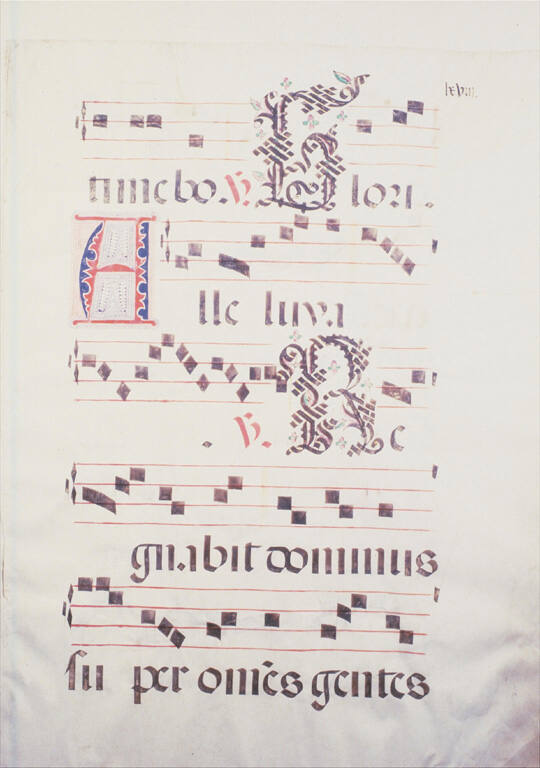 lxviii.
timebo. V. Glori .
Alle luya
. V. Re
gnabit dominus
su per om̄es gentes